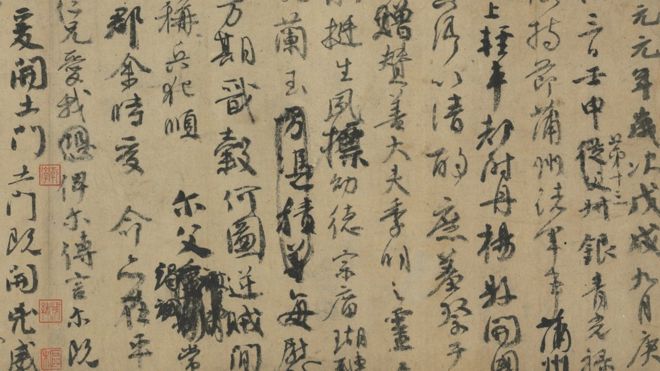 元元年歲次戊戌九月庚
三日壬申第十三叔銀青光祿
持節蒲州諸軍事蒲州
上輕車都尉丹楊縣開國
卿以清酌庶羞祭于
贈贊善大夫季明之靈
挺生夙標幼德宗廟瑚
蘭玉方憑積善每慰
方期戩穀何圖逆賊間
稱兵犯順爾父竭誠常
郡余時受命亦在平
仁兄愛我俾爾傳言爾既
爰開土門土門既開凶威